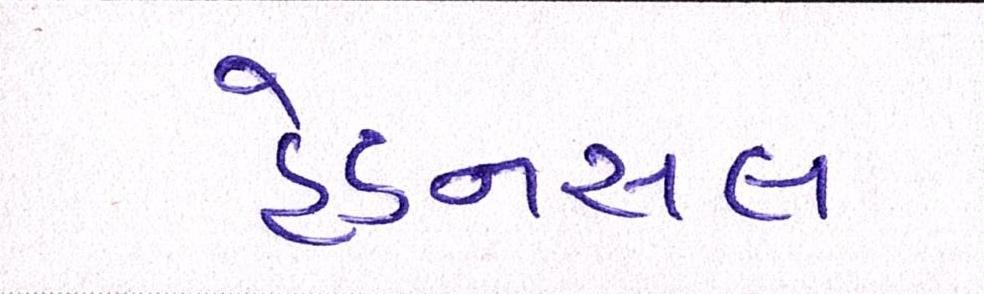 હેડનસલ